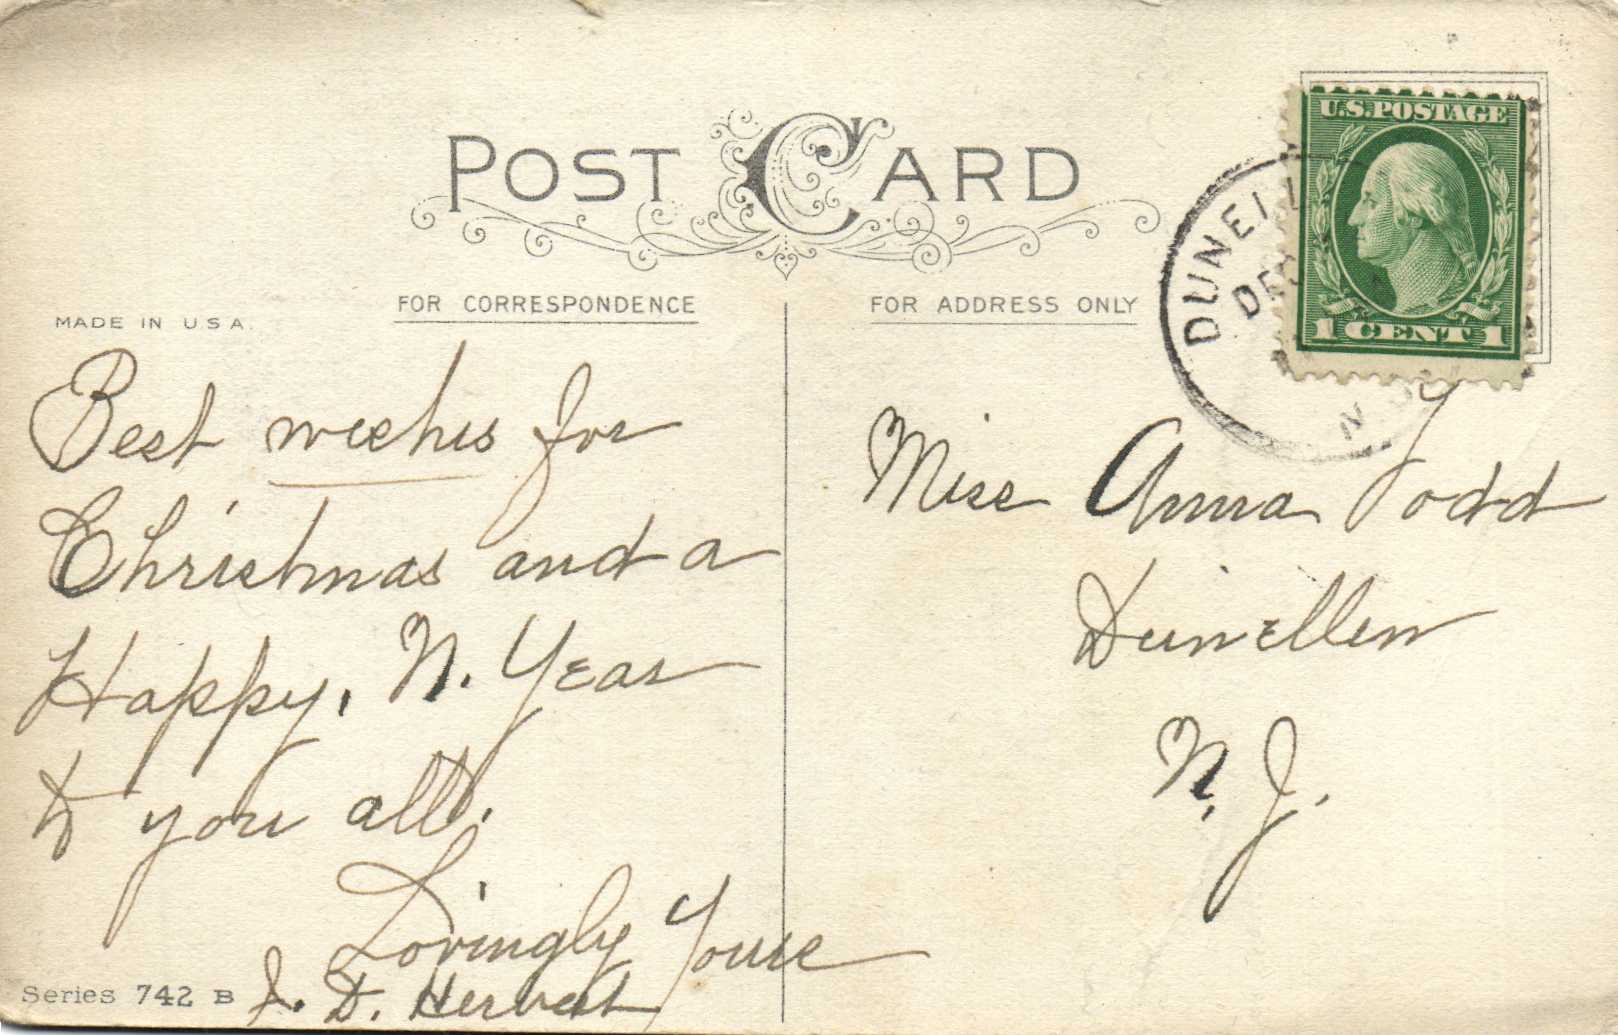 POST CARD
U.S. POSTAGE
1 CENT 1
DUNELL
DEC
N.J.
FOR CORRESPONDENCE
FOR ADDRESS ONLY
MADE IN U.S.A.
Best wishes for
Christmas and a
Happy, N. Year
to you all.
Lovingly Yours
J. D.
Series 742 B
Miss Anna Todd
Dunellen
N. J.